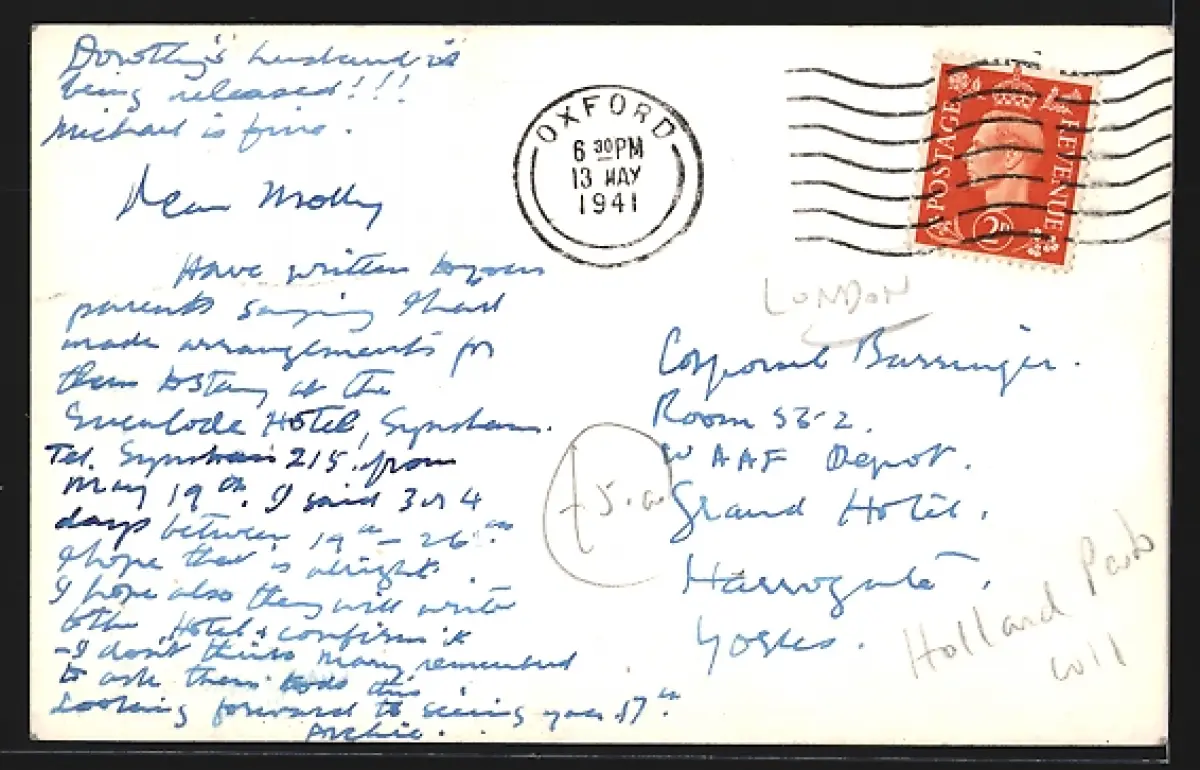 Dorothy's husband is
being released!!!
Michael is fine.
Dear Molly
Have written to your
parents saying I had
made arrangements for
them to stay at the
Evenlode Hotel, Eynsham.
Tel. Eynsham 215. from
May 19th. I said 3 or 4
days between 19th - 26th.
I hope that is alright.
I hope also they will write
to the Hotel & confirm it
- I don't think Mary remembered
to ask them to do this
Looking forward to seeing you 17th.
Archie.
OXFORD
6 30 PM
13 MAY
1941
POSTAGE REVENUE
2D
LONDON
Corporal Barringer.
Room 232.
WAAF Depot.
Grand Hotel.
Harrogate.
Yorks.
Holland Park
W11